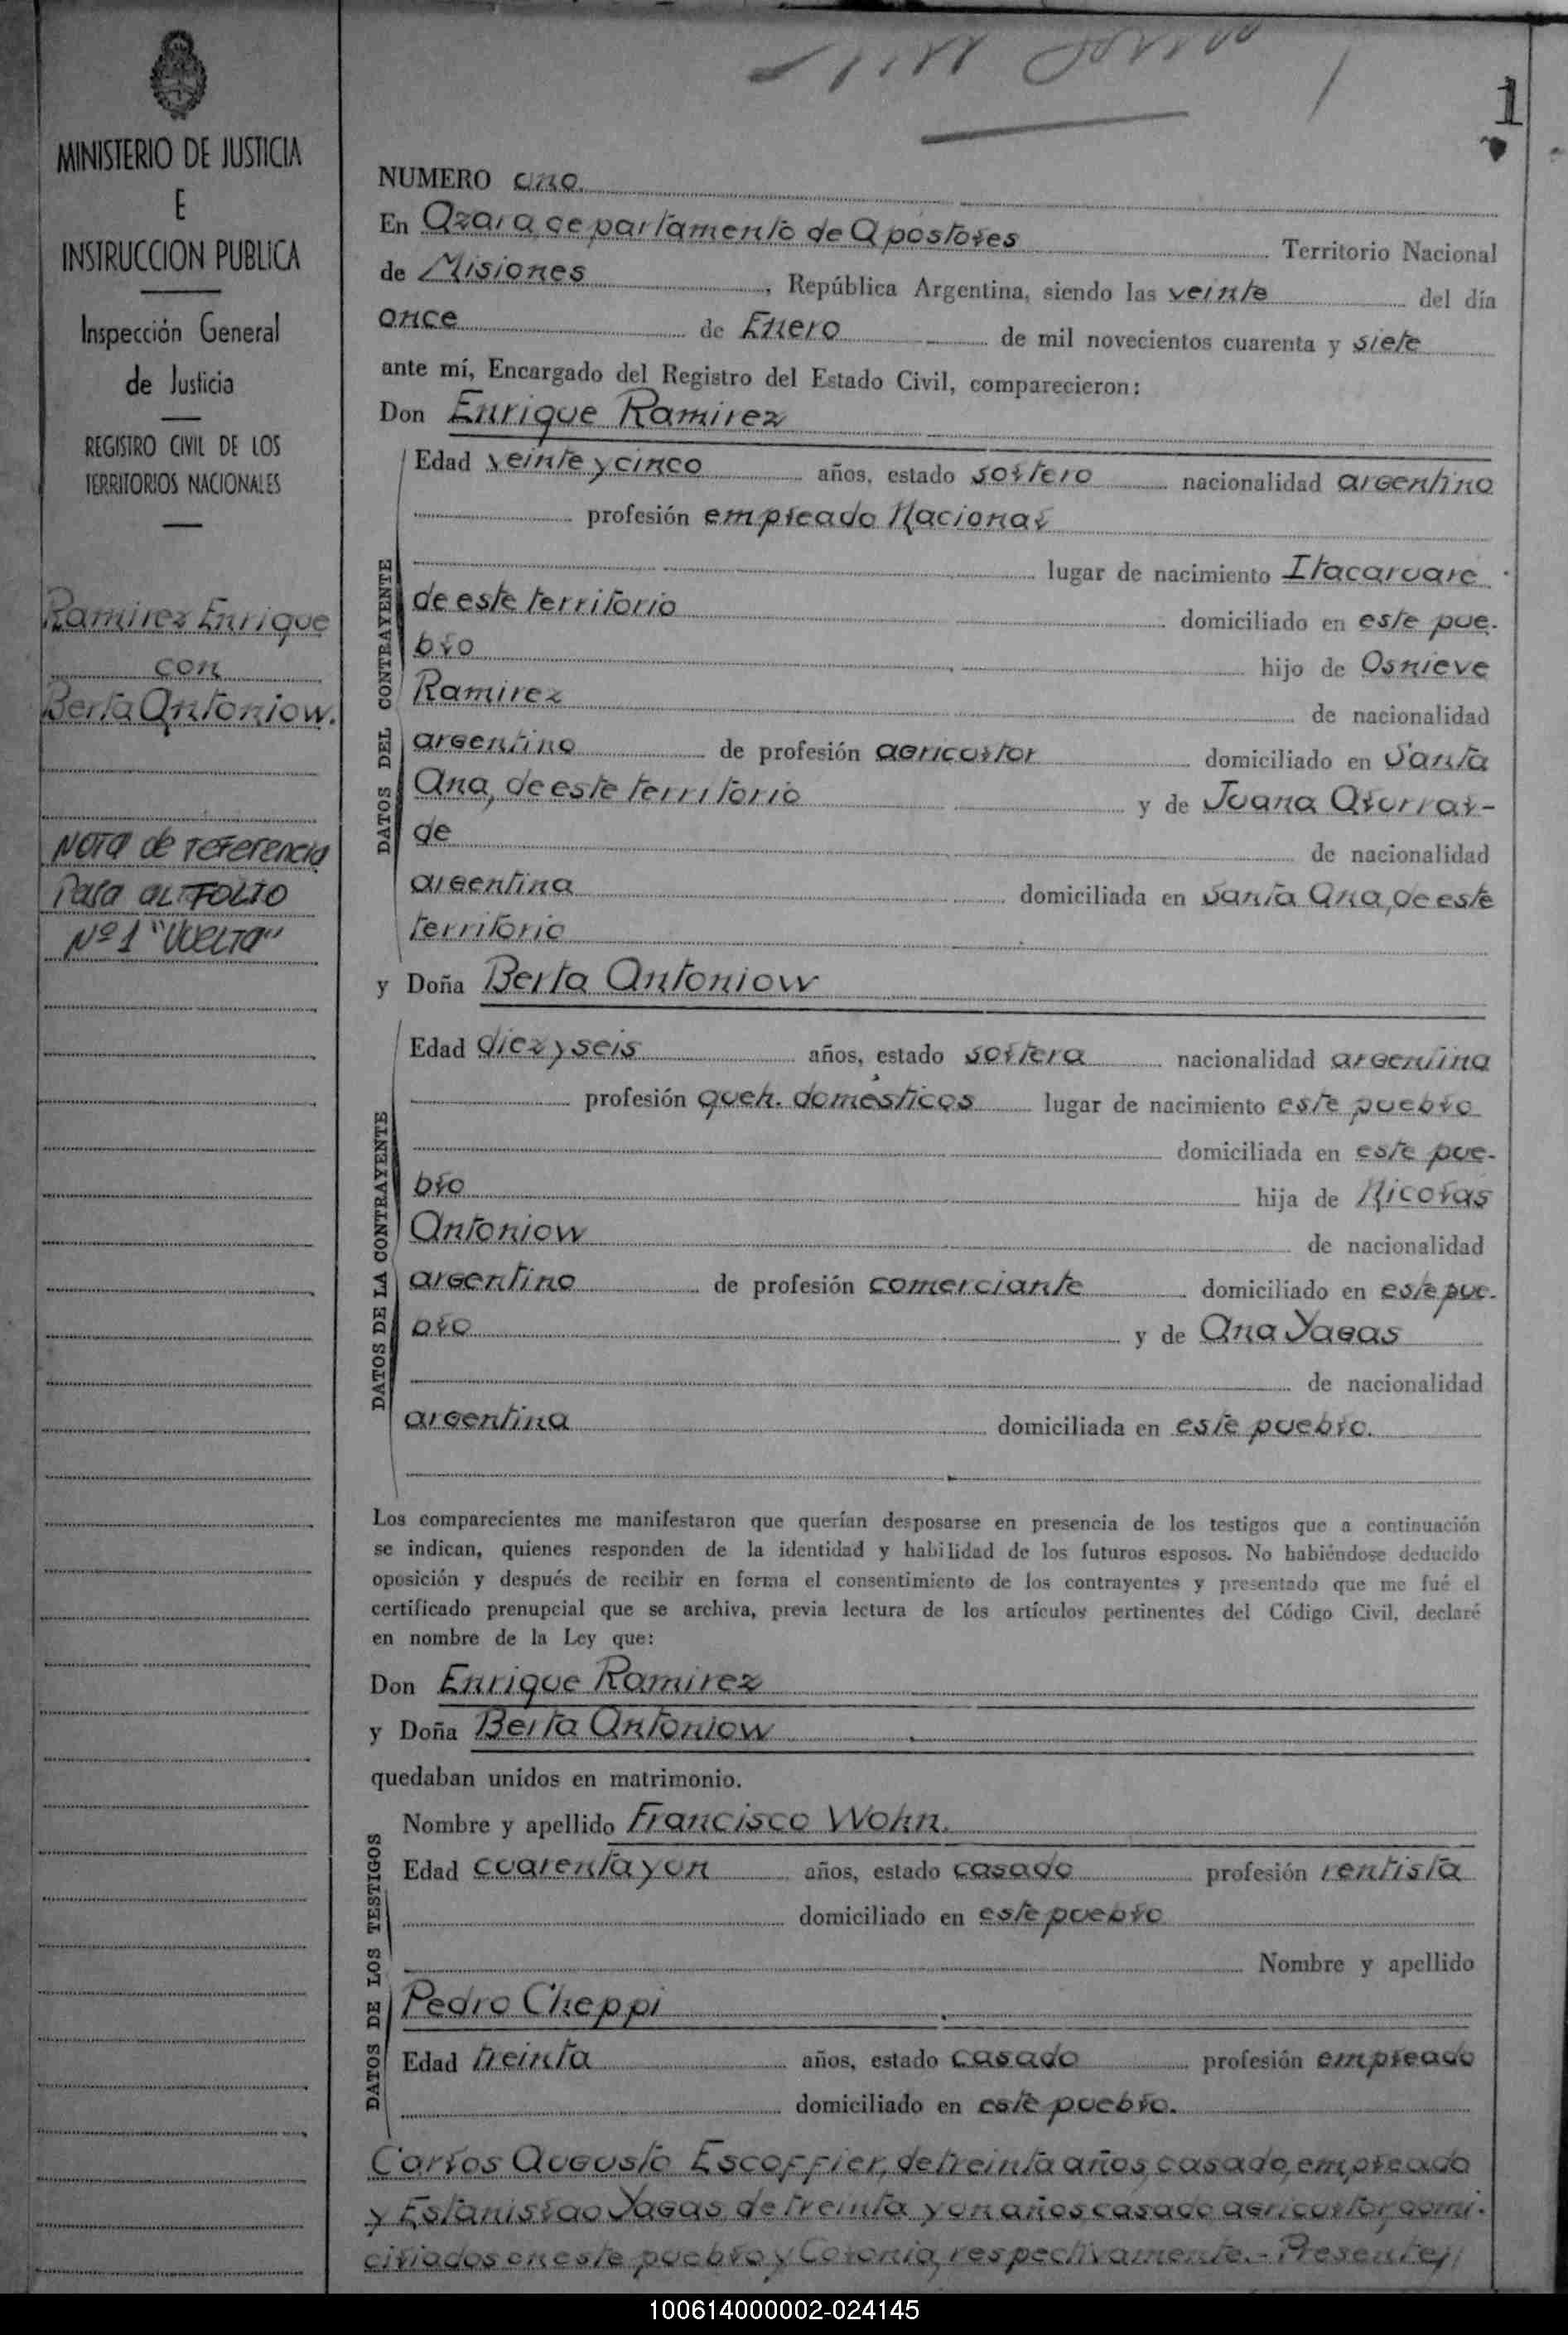 1
MINISTERIO DE JUSTICIA
E
INSTRUCCION PUBLICA
Inspección General
de Justicia
REGISTRO CIVIL DE LOS
TERRITORIOS NACIONALES
Ramirez Enrique
con
Berta Antoniow.
NOTA de referencia
Para al FOLIO
Nº 1 "VUELTA"
NUMERO uno.
En Azara, departamento de Apostoles Territorio Nacional
de Misiones, República Argentina, siendo las veinte del día
once de Enero de mil novecientos cuarenta y siete
ante mí, Encargado del Registro del Estado Civil, comparecieron:
Don Enrique Ramirez
DATOS DEL CONTRAYENTE
Edad veinte y cinco años, estado soltero nacionalidad argentino
profesión empleado Nacional
lugar de nacimiento Itacaruare
de este territorio domiciliado en este pue-
blo hijo de Osnieve
Ramirez de nacionalidad
argentino de profesión agricultor domiciliado en Santa
Ana, de este territorio y de Juana
de de nacionalidad
argentina domiciliada en Santa Ana, de este
territorio
y Doña Berta Antoniow
DATOS DE LA CONTRAYENTE
Edad diez y seis años, estado soltera nacionalidad argentina
profesión queh. domésticos lugar de nacimiento este pueblo
domiciliada en este pue-
blo hija de Nicolas
Antoniow de nacionalidad
argentino de profesión comerciante domiciliado en este pue-
blo y de Ana Yagas
de nacionalidad
argentina domiciliada en este pueblo.
Los comparecientes me manifestaron que querían desposarse en presencia de los testigos que a continuación
se indican, quienes responden de la identidad y habilidad de los futuros esposos. No habiéndose deducido
oposición y después de recibir en forma el consentimiento de los contrayentes y presentado que me fué el
certificado prenupcial que se archiva, previa lectura de los artículos pertinentes del Código Civil, declaré
en nombre de la Ley que:
Don Enrique Ramirez
y Doña Berta Antoniow
quedaban unidos en matrimonio.
DATOS DE LOS TESTIGOS
Nombre y apellido Francisco Wohn.
Edad cuarenta y un años, estado casado profesión rentista
domiciliado en este pueblo
Nombre y apellido
Pedro Cheppi
Edad treinta años, estado casado profesión empleado
domiciliado en este pueblo.
Carlos Augusto Escoffier, de treinta años, casado, empleado
y Estanislao Yagas, de treinta y un años casado agricultor, domi-
ciliados en este pueblo y Colonia, respectivamente.- Presente
100614000002-024145